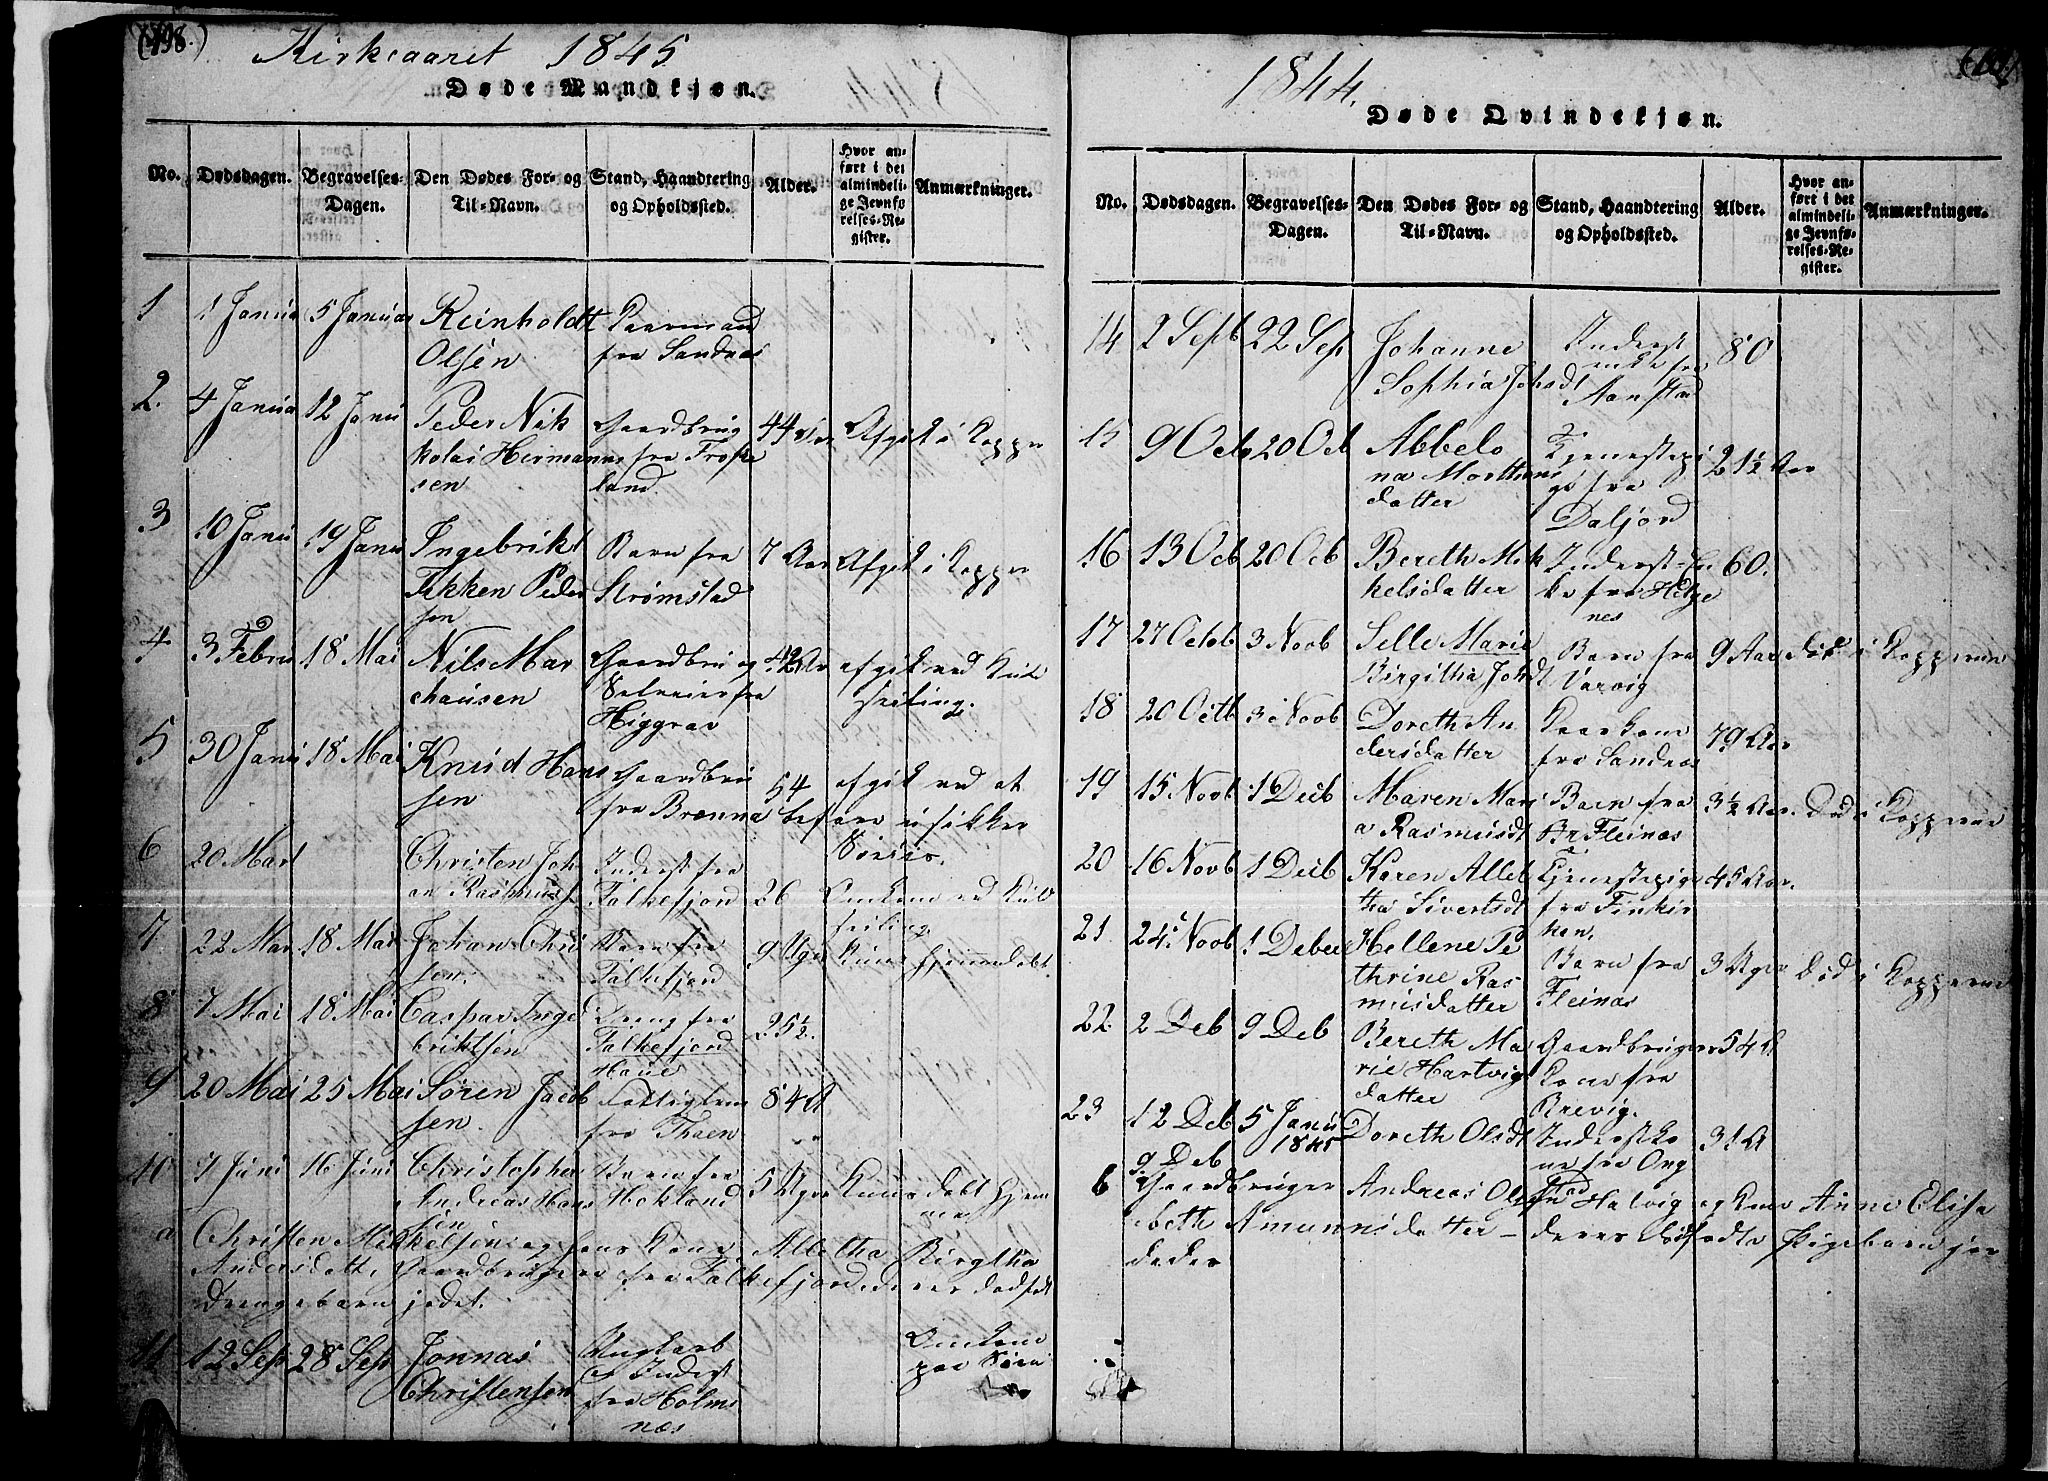 (198.)
Kirkeaaret 1845
Døde Mandkjøn.
No. Dødsdagen. Begravelses-Dagen. Den Dødes For- og Til-Navn. Stand, Haandtering og Opholdssted. Alder. Hvor anført i det almindelige Jevnførelses-Register. Anmærkninger.
1 1 Janua 5 Januar Reinholdt Olsen fra Sandnes
2. 4 Janua 12 Janu Peder Nik kolai Hermann sen Gaardbrug fra Froske land. 44 Aar Afgik i Kopper
3 10 Janu 19 Janu Ingebrikt Fikken Peder sen Barn fra Strømstad 7 Aar Afgik i Kopper
4 3 Febru 18 Mai Nils Mar chausen Gaardbru og Selveier fra Higgrav 42 Ar afgik ved Kul seiling.
5 30 Janu 18 Mai Knud Hans sen Gaardbru fra Brenna 54 afgik ved at befare usikker
6 20 Mart Christen Joh an Rasmuss Inderst fra Falkefjord 26 Omkom ved Kul seiling
7 22 Mar 18 Mai Johan Chri sen. Barn fra Falkefjord 9 Uger Kuns hjemmedøbt
8 7 Mai 18 Mai Caspar Inge briktsen Dreng fra Falkefjord 25½.
9 20 Mai 25 Mai Søren Jacob sen. Fattiglem fra Thoen 84 A
10 7 Juni 16 Juni Christopher Andreas Hans sen Barn fra Hokland 5 Uger Kuns døbt hjem me
a Christen Mikkelsen og hans Kone Alletha Birgtha
Andersdatt, Gaardbrugere fra Falkefjord deres dødfødt
Drengebarn jodet.
11 12 Sep 28 Sep Jonnas Christensen Inderst fra Holms næs Omkom paa Søen
1844.
Døde Qvindekjøn.
No. Dødsdagen. Begravelses-Dagen. Den Dødes For- og Til-Navn. Stand, Haandtering og Opholdssted. Alder. Hvor anført i det almindelige Jevnførelses-Register. Anmærkninger.
14 2 Septb 22 Sep Johanne Sophia Johsdt Inderst enke fra Aanstad 80
15 9 Octo 20 Oct Abbelo na Morthens datter Tjenestepi ge fra Daljord 21½ Aar
16 13 Octb 20 Octb Bereth Mik kelsdatter Inderst-En ke fra Helge nes 60.
17 27 Octob 3 Novb Selle Marie Birgitha Johdt Barn fra Varvig 9 Aar død i Kopperne
18 20 Octb 3 Novb Doreth An dersdatter Kaarkone fra Sandnes 79 Aar
19 15 Novb 1 Decb Maren Mari a Rasmusdt Barn fra Fleinæs 3½ Aar. Død i Kopperne
20 16 Novb 1 Decb Karen Allet tha Sivertsdt Tjenestepige fra Finkir ken. 45 Aar.
21 24 Novb 1 Decber Hellene Pe thrine Ras musdatter Barn fra Fleinas 3 Uger død i Kopperne
22. 2 Deb 9 Deb Bereth Ma rie Hartvigs datter Gaardbruger Kone fra Brevig. 54 A
23 12 Deb 5 Janu 1845 Doreth Olsdt Inderstko ne fra Ong stad 31 A
9 Deb
b Gaardbruger Andreas Olsen Halvig og Kone Anne Elisa
beth Amunnsdatter – deres dødfødte Pigebarn jor